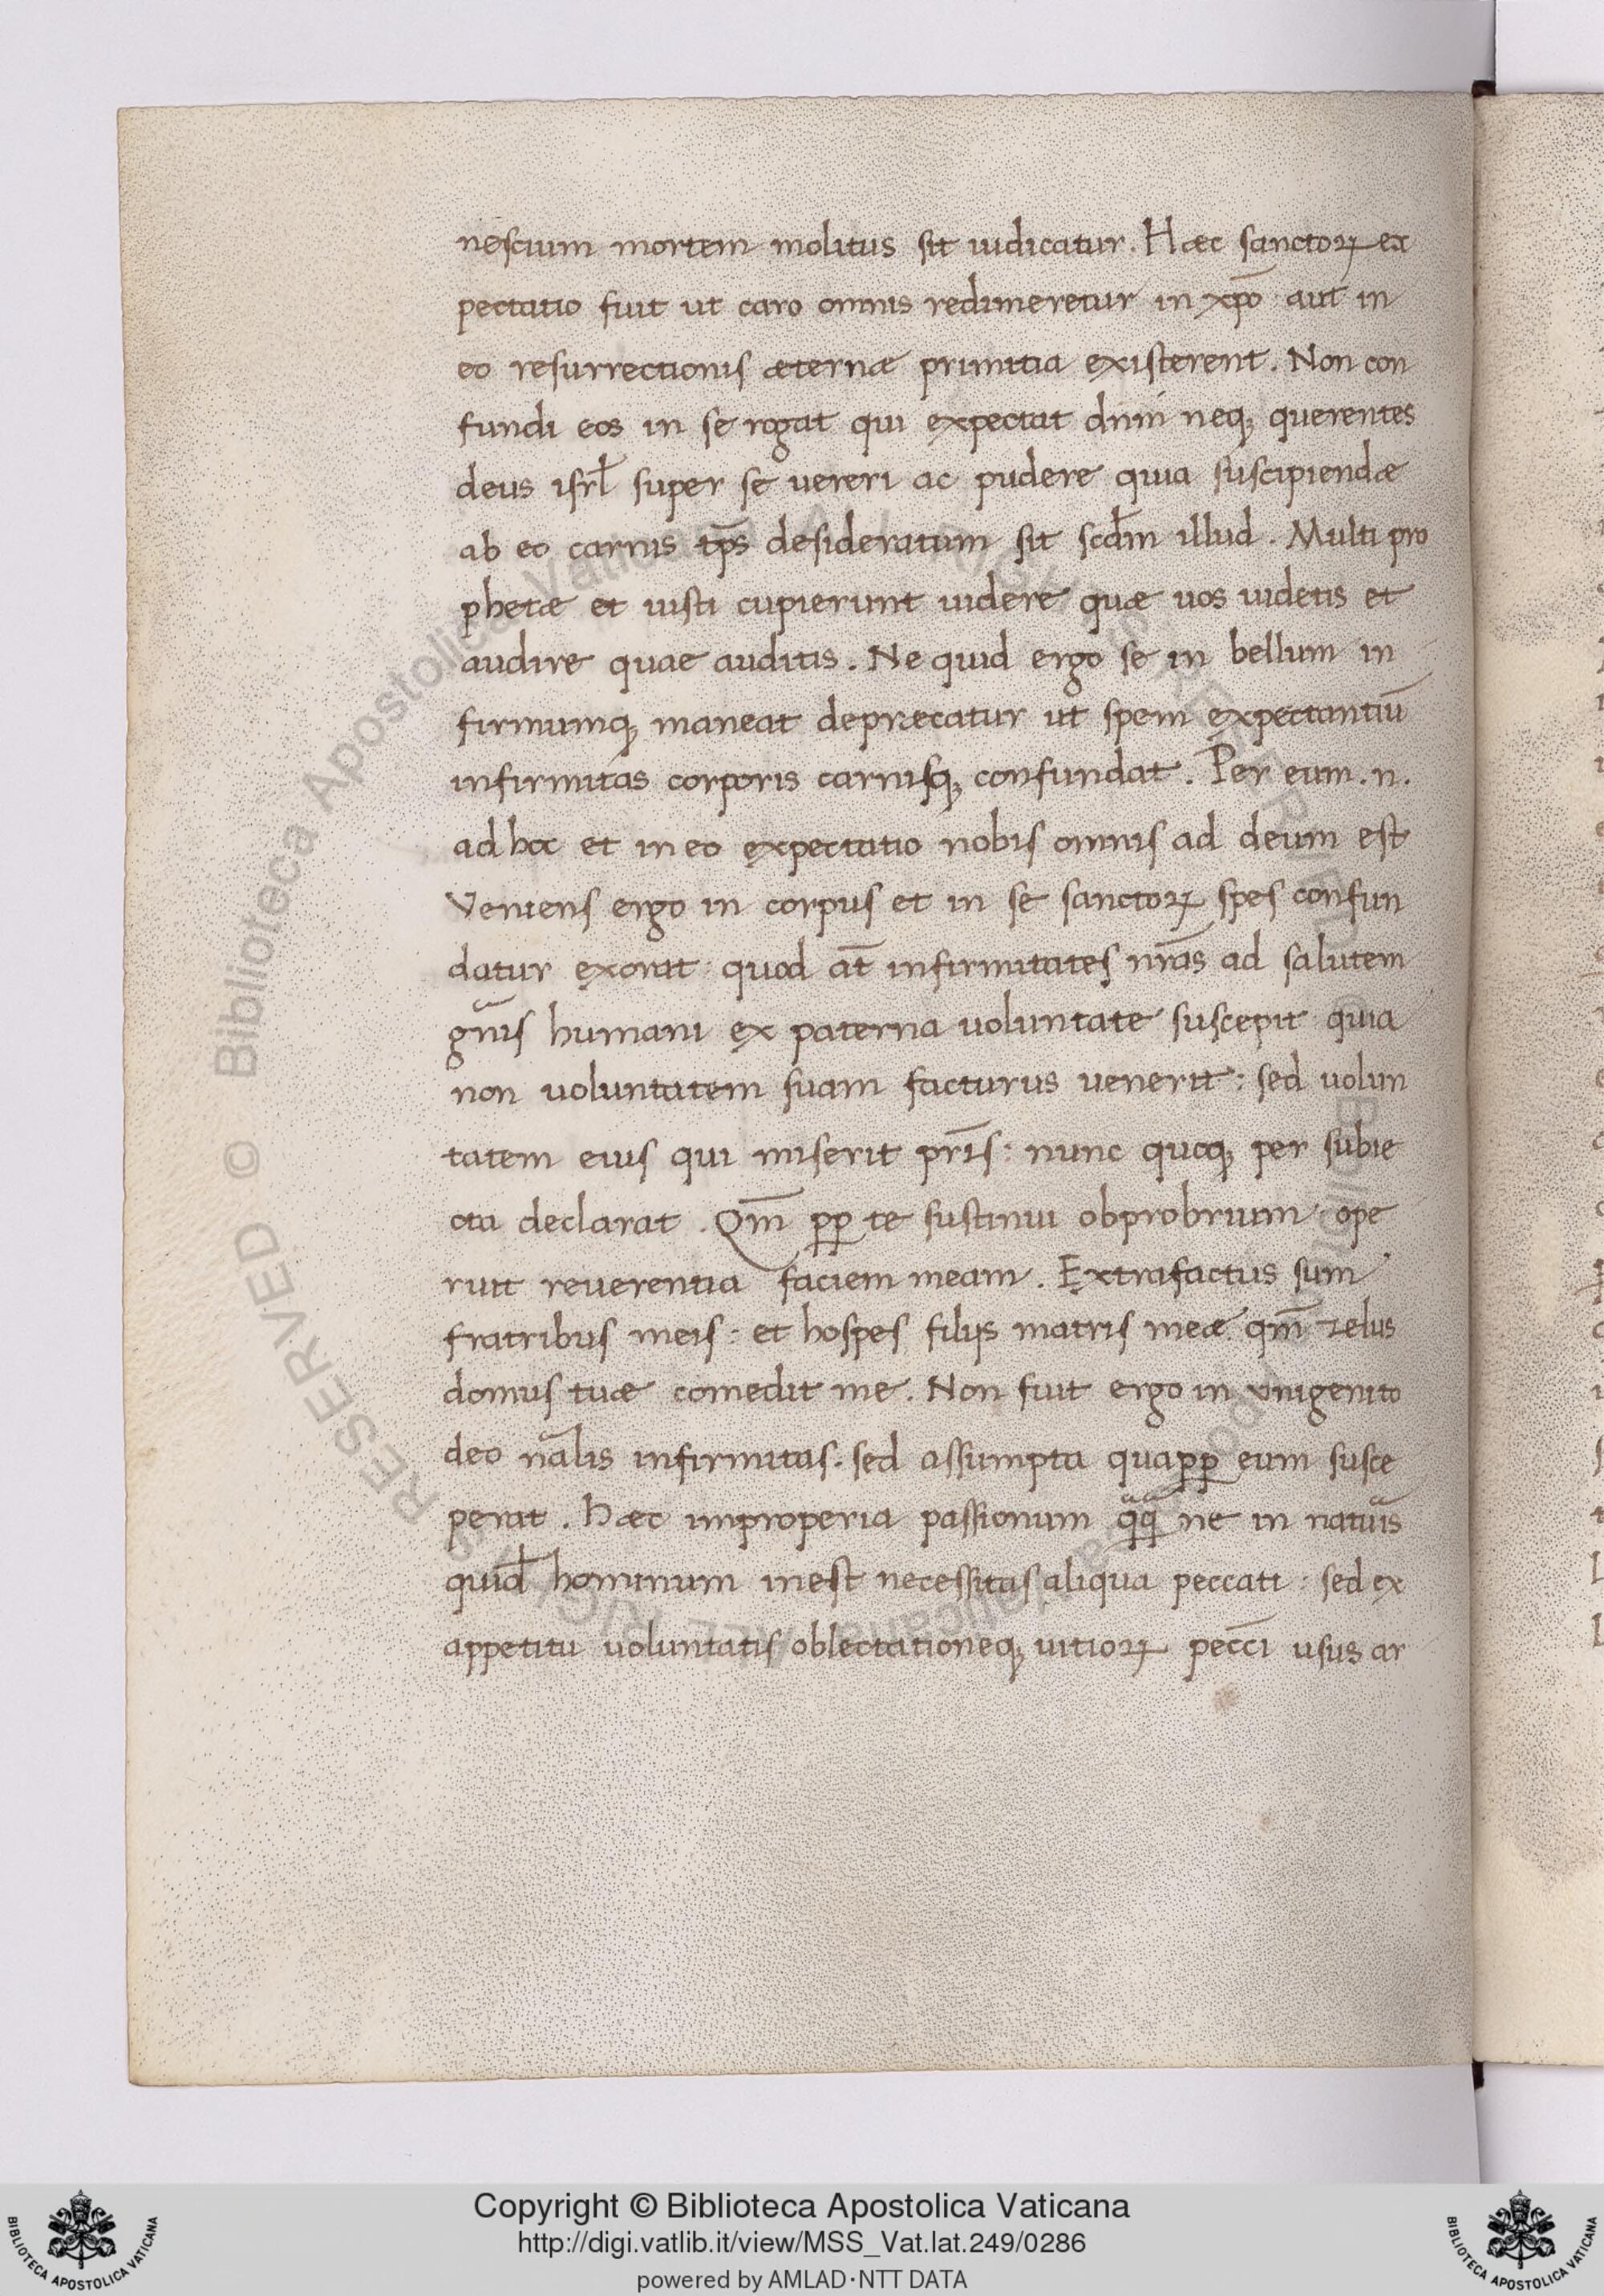 nescium mortem molitus sit iudicatur. Hæc sanctoꝝ ex
pectatio fuit ut caro omnis redimeretur in xp̄o: aut in
eo resurrectionis æternæ primitia existerent. Non con
fundi eos in se rogat qui expectat dnm̄ neqꝫ querentes
deus isrl̄ super se uereri ac pudere quia suscipiendæ
ab eo carnis tp̄s desideratum sit scd̄m illud. Multi pro
phetæ et iusti cupierunt uidere quæ uos uidetis et
audire quae auditis. Ne quid ergo se in bellum in
firmumqꝫ maneat deprecatur ut spem expectantiū
infirmitas corporis carnisqꝫ confundat. Per eum .n.
ad hoc et in eo expectatio nobis omnis ad deum est
Veniens ergo in corpus et in se sanctoꝝ spes confun
datur exorat: quod at̄ infirmitates nr̄as ad salutem
gn̄is humani ex paterna uoluntate suscepit quia
non uoluntatem suam facturus uenerit: sed uolun
tatem eius qui miserit pr̄is: nunc quoqꝫ per subie
cta declarat. Qm̄ pp̱ te sustinui obprobrium ope
ruit reuerentia faciem meam. Extrafactus sum
fratribus meis: et hospes filijs matris meæ qm̄ zelus
domus tuæ comedit me. Non fuit ergo in unigenito
deo nāl̄is infirmitas. sed assumpta quapp̱ eum susce
perat. Hæc improperia passionum q̄q̄ ne in natuīs
quid̄ hominum inest necessitas aliqua peccati: sed ex
appetitu uoluntatis oblectationeqꝫ uitioꝝ pecc̄i usus ar
Copyright © Biblioteca Apostolica Vaticana
http://digi.vatlib.it/view/MSS_Vat.lat.249/0286
powered by AMLAD·NTT DATA
BIBLIOTECA APOSTOLICA VATICANA
BIBLIOTECA APOSTOLICA VATICANA